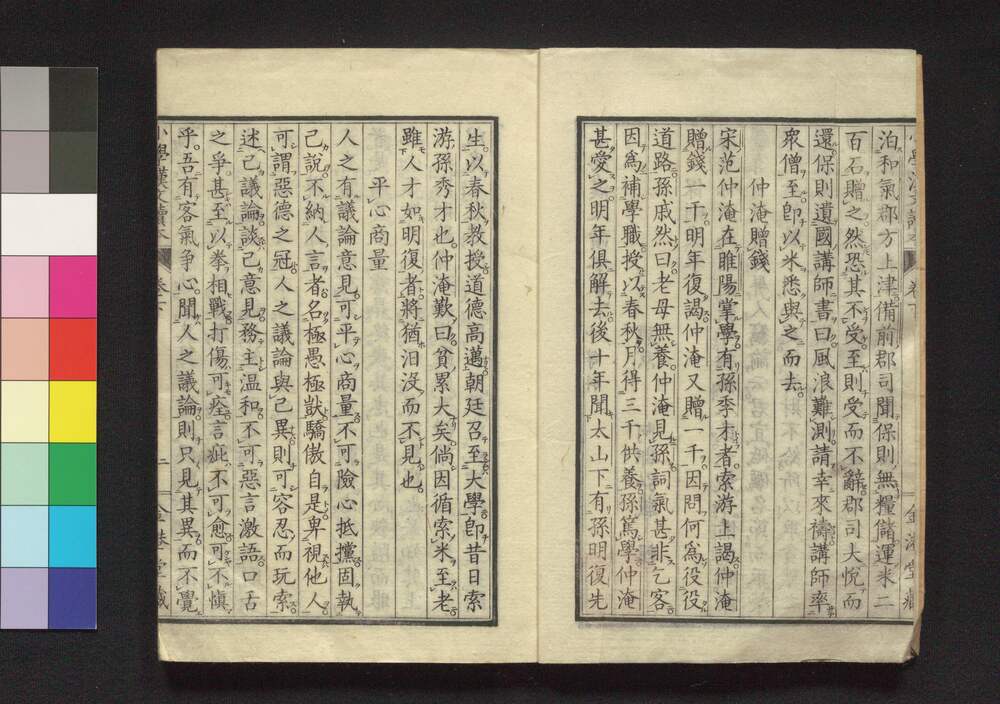 泊和氣郡方上津備前郡司聞保則無糧儲運米二
百石贈之然恐其不受至則受而不辭郡司大悅而
還保則遺國講師書曰風浪難測請幸來禱講師率
衆僧至卽以米悉與之而去
仲淹贈錢
宋范仲淹在睢陽掌學有孫秀才者索游上謁仲淹
贈錢一千明年復謁仲淹又贈一千因問何爲役役
道路孫戚然曰老母無養仲淹見孫詞氣甚非乞客
因爲補學職授以春秋月得三千供養孫篤學仲淹
甚愛之明年俱解去後十年聞太山下有孫明復先
生以春秋敎授道德高邁朝廷召至大學卽昔日索
游孫秀才也仲淹歎曰貧累大矣倘因循索米至老
雖人才如明復者將猶汨沒而不見也
平心商量
人之有議論意見可平心商量不可險心抵攩固執
己說不納人言者名極愚極獃驕傲自是卑視他人
可謂惡德之冠人之議論與己異則可容忍而玩索
述己議論談己意見務主溫和不可惡言激語口舌
之爭甚至以拳相戰打傷可痊言疵不可愈可不愼
乎吾有客氣爭心聞人之議論則只見其異而不覺
小學漢文讀本 卷下 二